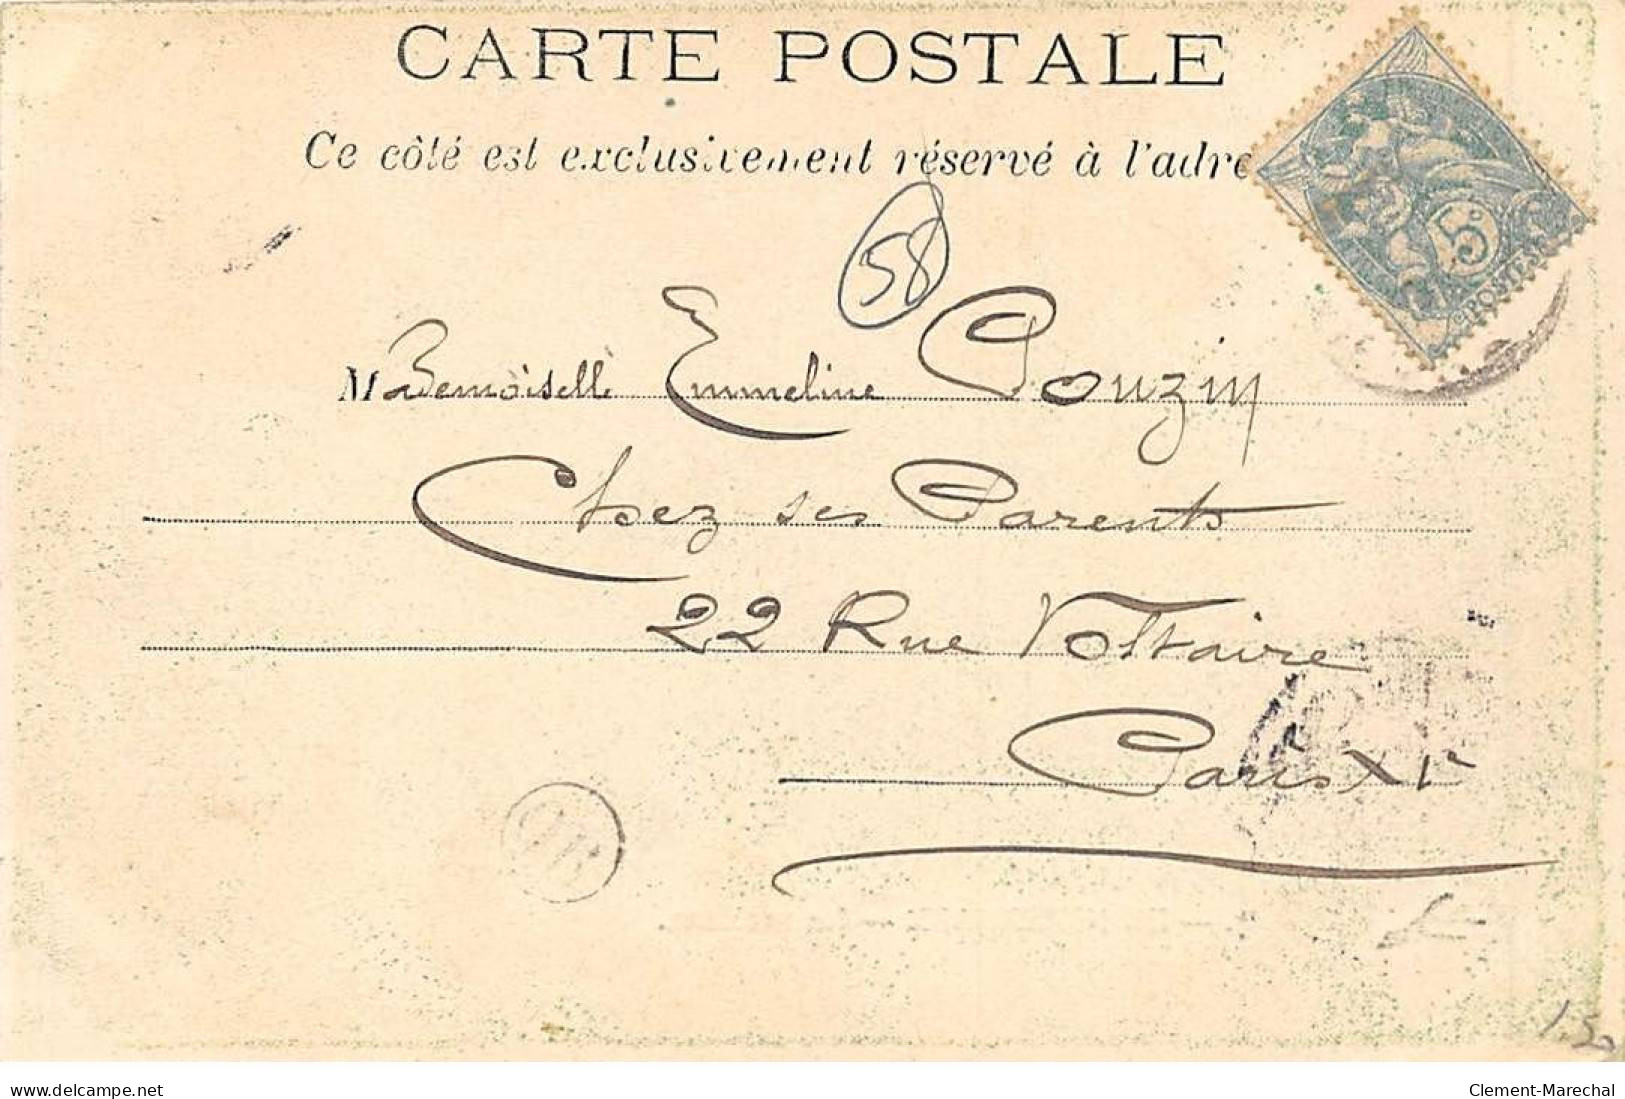 CARTE POSTALE
Ce côté est exclusivement réservé à l'adre
5c
POSTES
58
Mademoiselle Emmeline Pouzin
Chez ses Parents
22 Rue Voltaire
Paris XIe
1.50
www.delcampe.net
Clement-Marechal